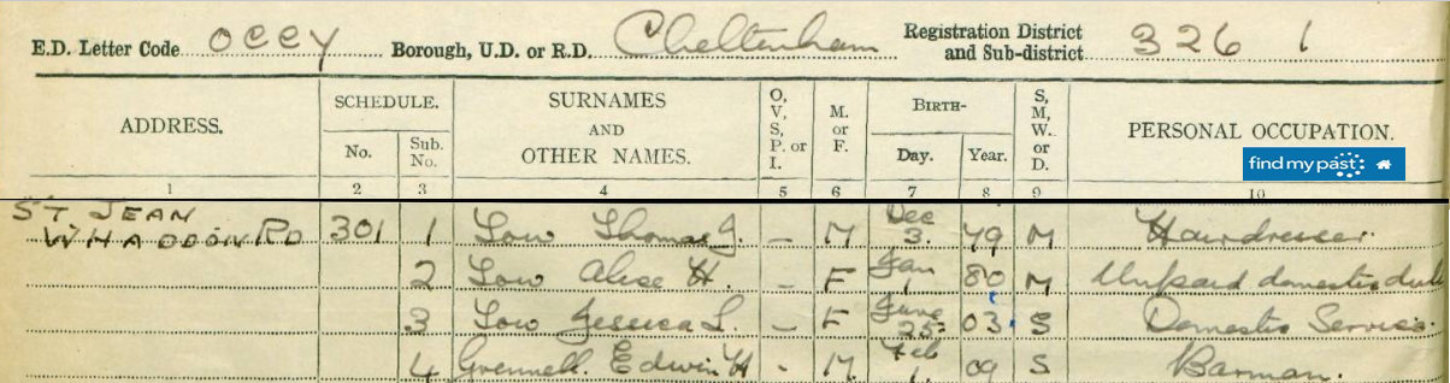 E.D. Letter Code OCCY Borough, U.D. or R.D. Cheltenham Registration District and Sub-district 326 1
ADDRESS. SCHEDULE. No. Sub. No. SURNAMES AND OTHER NAMES. O, V, S, P. or I. M. or F. BIRTH- Day. Year. S, M, W. or D. PERSONAL OCCUPATION.
findmypast
1 2 3 4 5 6 7 8 9 10
ST JEAN
WHADDON RD 301 1 Low Thomas J. - M Dec 3. 79 M Hairdresser.
2 Low Alice H. - F Jan 1 80 M Unpaid domestic duti
3 Low Jessica L. - F June 25. 03 S Domestic Service.
4 Grennell. Edwin H - M. Feb 1. 09 S Barman.